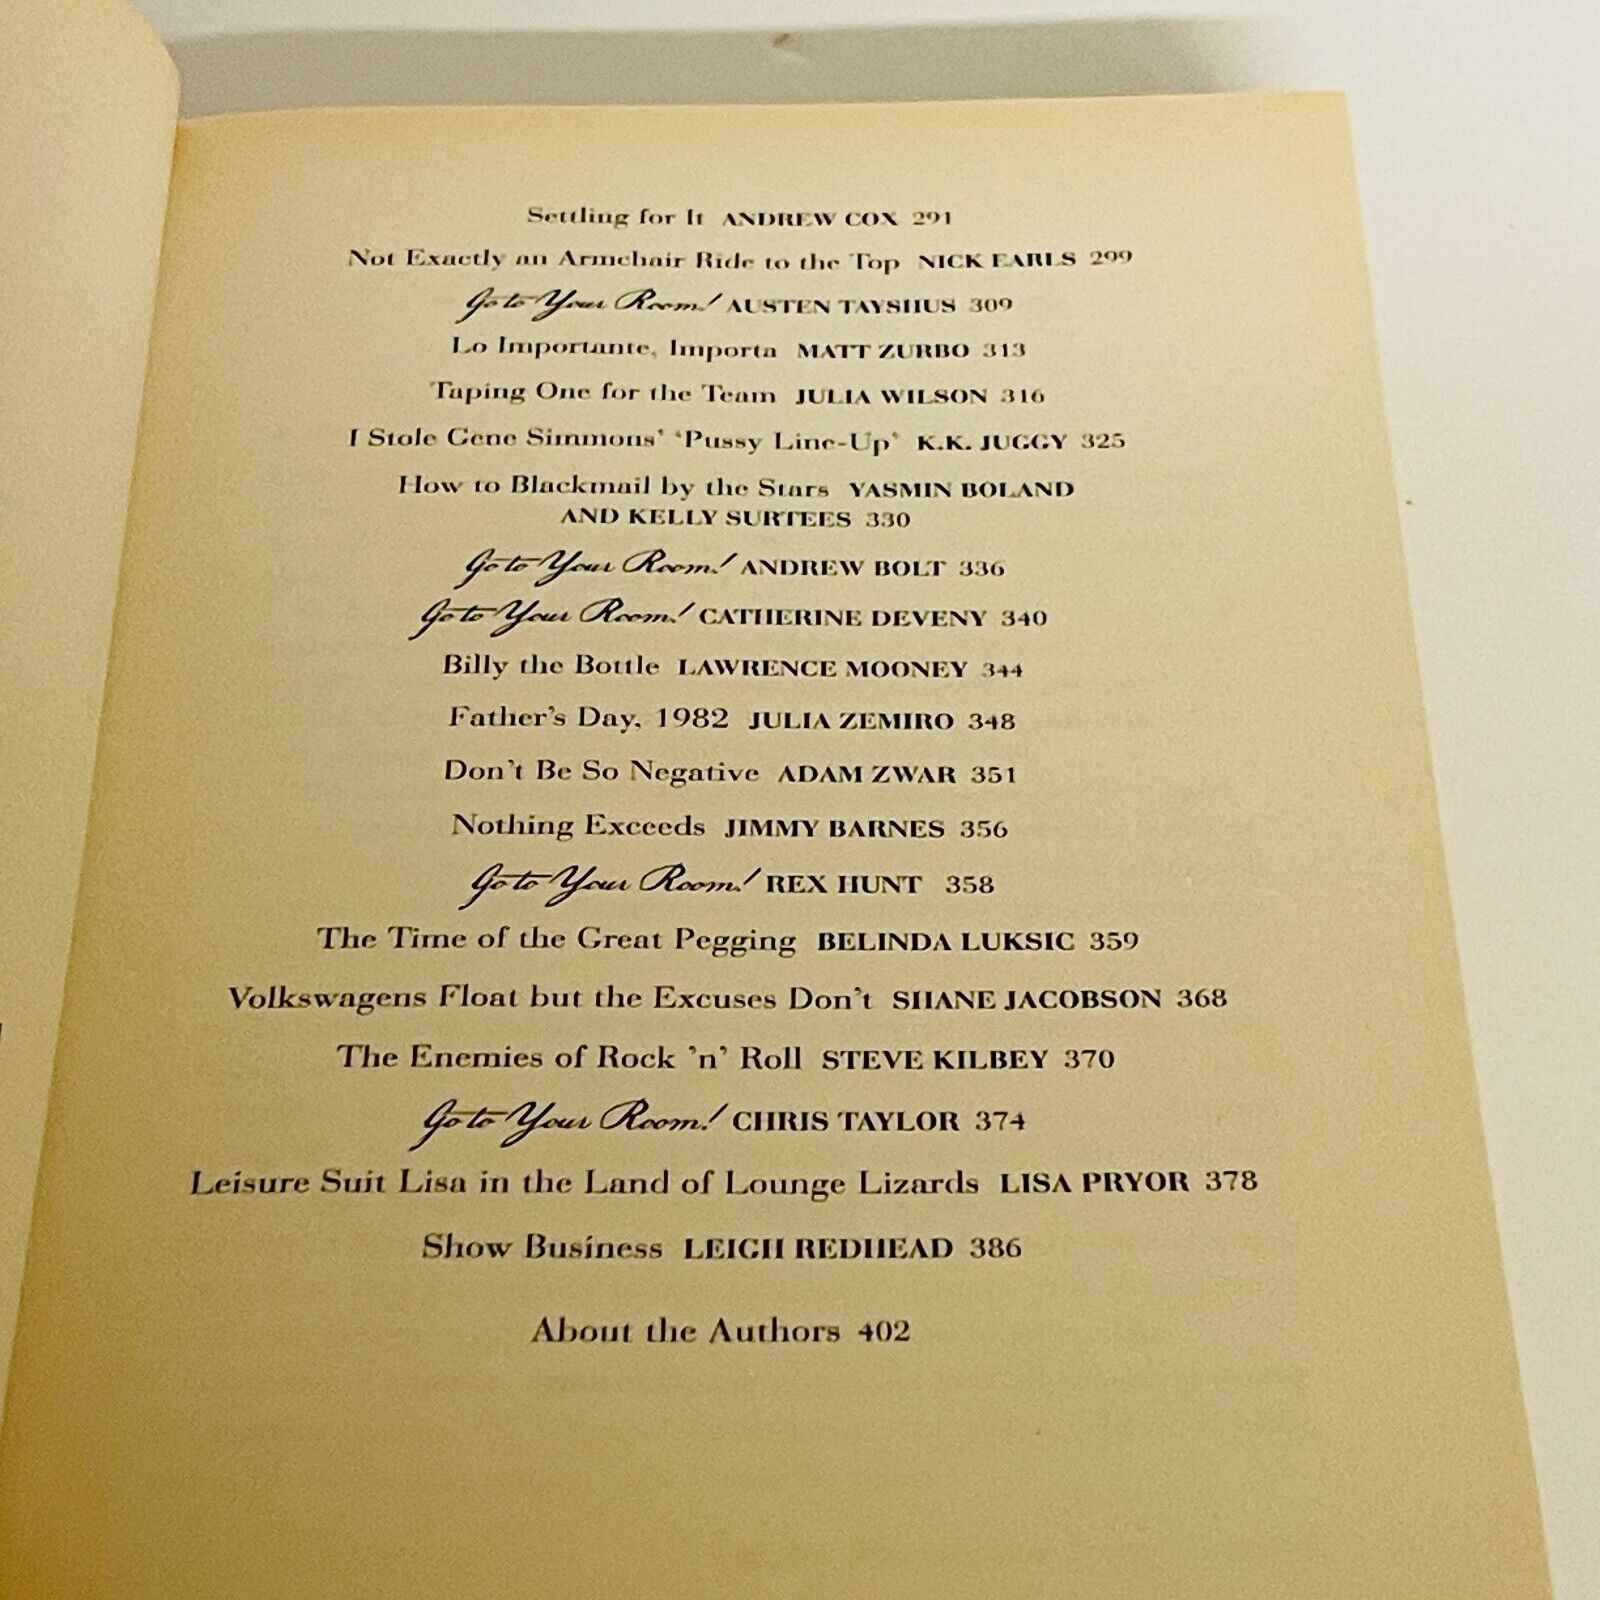 Settling for It ANDREW COX 291
Not Exactly an Armchair Ride to the Top NICK EARLS 299
Go to Your Room! AUSTEN TAYSHUS 309
Lo Importante, Importa MATT ZURBO 313
Taping One for the Team JULIA WILSON 316
I Stole Gene Simmons' 'Pussy Line-Up' K.K. JUGGY 325
How to Blackmail by the Stars YASMIN BOLAND
AND KELLY SURTEES 330
Go to Your Room! ANDREW BOLT 336
Go to Your Room! CATHERINE DEVENY 340
Billy the Bottle LAWRENCE MOONEY 344
Father's Day, 1982 JULIA ZEMIRO 348
Don't Be So Negative ADAM ZWAR 351
Nothing Exceeds JIMMY BARNES 356
Go to Your Room! REX HUNT 358
The Time of the Great Pegging BELINDA LUKSIC 359
Volkswagens Float but the Excuses Don't SHANE JACOBSON 368
The Enemies of Rock 'n' Roll STEVE KILBEY 370
Go to Your Room! CHRIS TAYLOR 374
Leisure Suit Lisa in the Land of Lounge Lizards LISA PRYOR 378
Show Business LEIGH REDHEAD 386
About the Authors 402